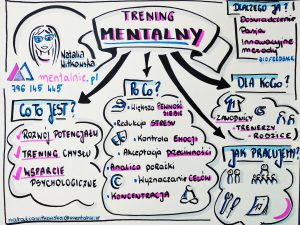 TRENING
MENTALNY
Natalia
Witkowska
mentalnie.pl
796 145 445
DLACZEGO JA?
Doświadczenie
Pasja
Innowacyjne
metody
BIOFEEDBACK
CO TO JEST?
ROZWÓJ POTENCJAŁU
TRENING UMYSŁU
WSPARCIE
PSYCHOLOGICZNE
PO CO?
Większa PEWNOŚĆ
SIEBIE
Redukcja STRESU
Kontrola EMOCJI
Akceptacja PRZECIWNOŚCI
Analiza PORAŻKI
Wyznaczanie CELÓW
KONCENTRACJA
DLA KOGO?
ZAWODNICY
TRENERZY
RODZICE
JAK PRACUJEMY?